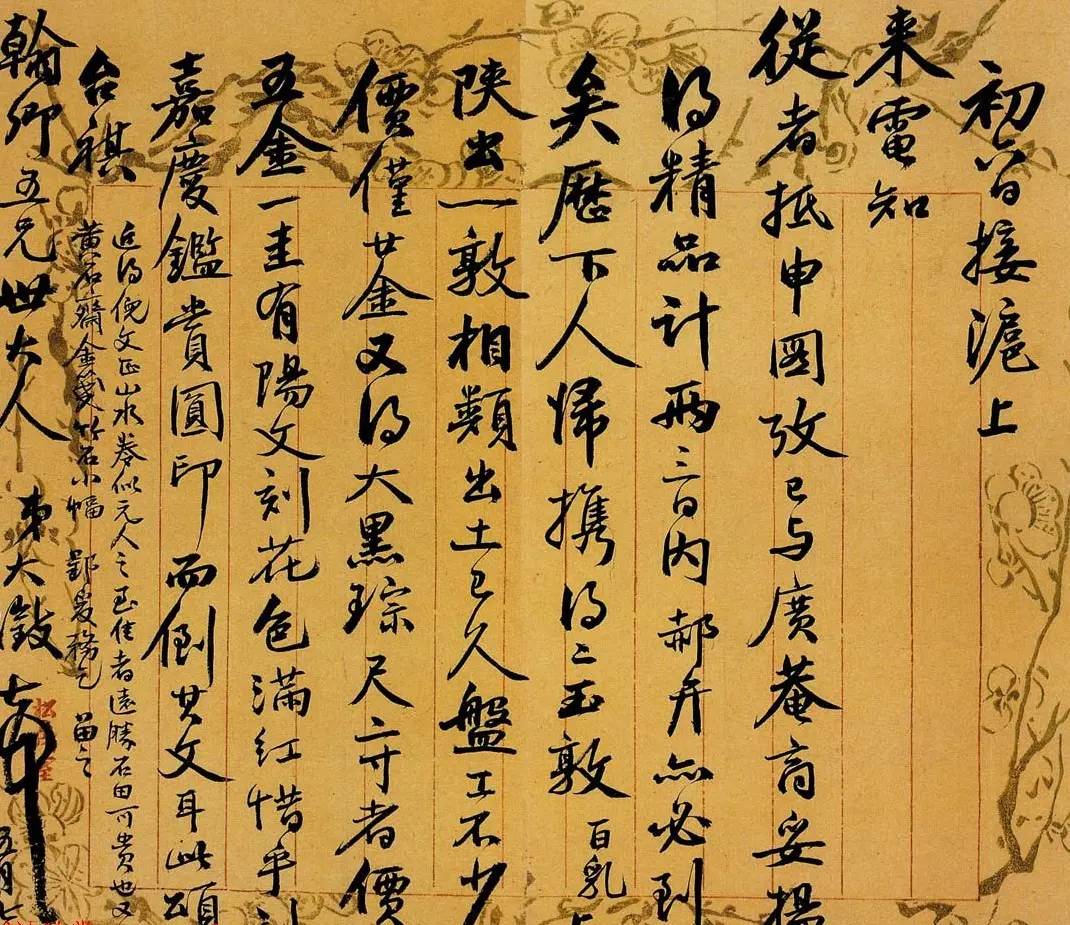 初六日接滬上
來電知
從者抵申國攷已與廣菴商妥揚
得精品計兩三日内郝弁亦必到
矣歷下人歸攜得二玉敦百乳
陝出一敦相類出土已久盤工不少
價僅廿金又得大黑琮尺二寸者價
五金一圭有陽文刻花色滿紅惜乎
嘉慶鑑賞圓印而倒其文耳此頌
台祺
近得倪文正山水卷似元人之至佳者遠勝石田可貴也又
黄石齋金箋竹石小幅
翰卿五兄世大人 弟大澂
五月七